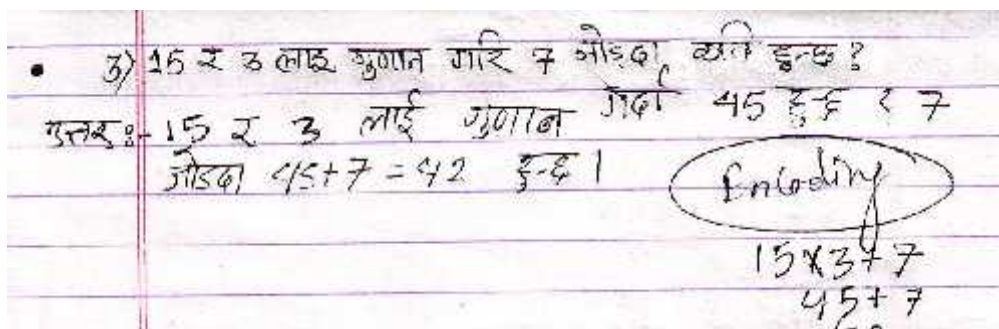 3) 15 र 3 लाइ गुणान गरि 7 जोड्दा कति हुन्छ ?
उत्तर :- 15 र 3 लाई गुणान गर्दा 45 हुन्छ र 7
जोडदा 45+7 = 42 हुन्छ ।
Encoding
15x3+7
45+7